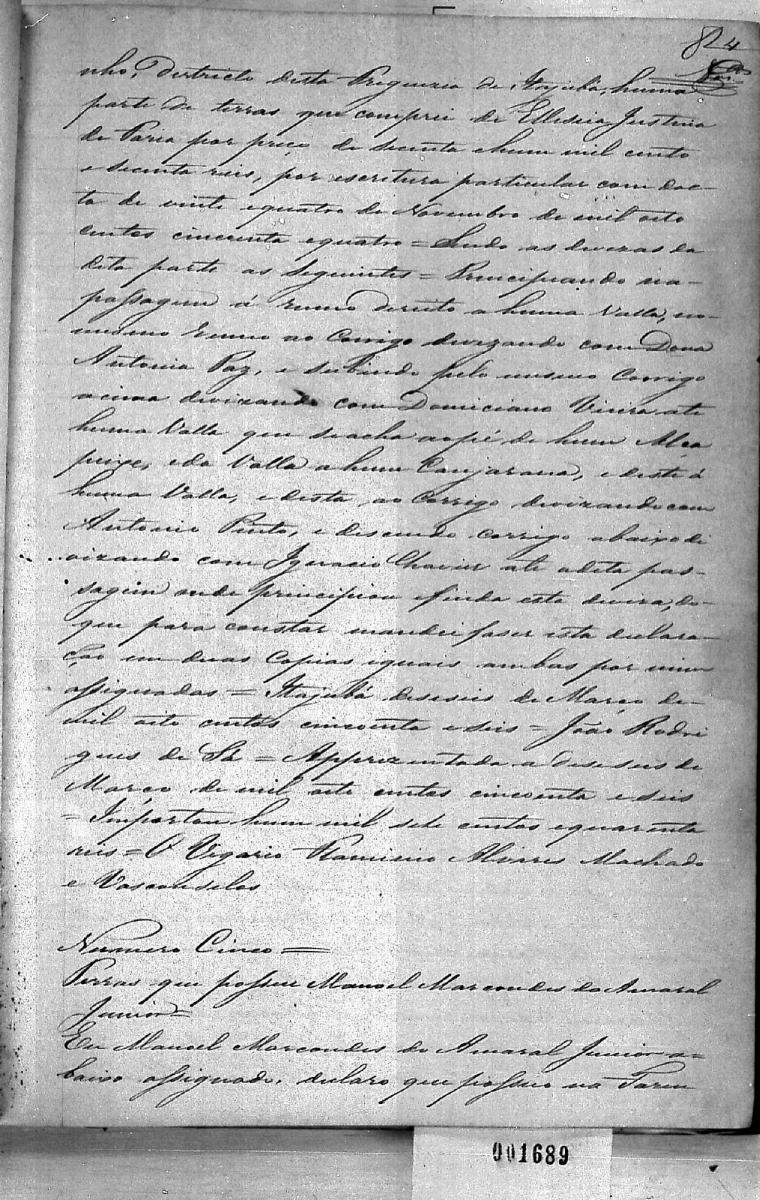 84
nho, Districto desta Freguezia de Itajubá, huma
parte de terras que comprei de Justina
de Faria por preço de secenta e hum mil cento
e secenta reis, por escritura particular com dac-
ta de vinte equatro de Novembro de mil oito
centos cincoenta equatro = Sendo as divizas da
dita parte as seguintes = Principiando na
passagem á rumo direito a huma Valla, no
mesmo rumo ao Corrigo divizando com Dona
Antonia Paz, e subindo pelo mesmo Corrigo
acima divizando com Domiciano Vieira ate
huma Valla que se acha ao pé de hum
e da Valla a hum Canjarana, e deste á
huma Valla, e desta ao Corrigo divizando com
Antonio Pinto, e descendo corrigo abaixo di
vizando com Ignacio Chavier ate a dita pas-
sagem onde principiou e finda esta diviza, do
que para constar mandei faser esta declara-
ção em duas Copias eguais ambas por mim
assignadas = Itajubá deseseis de Março de
mil oito centos cincoenta e seis = João Rodri
gues de Sá = Apprezentada a deseseis de
Março de mil oito centos cincoenta e seis
= Importou hum mil sete centos equarenta
reis = O Vigario Alvares Machado
e Vasconselos
Numero Cinco =
Terras que possue Manoel Marcondes do Amaral
Junior =
Eu Manoel Marcondes do Amaral Junior a-
baixo assignado, declaro que possuo na
001689